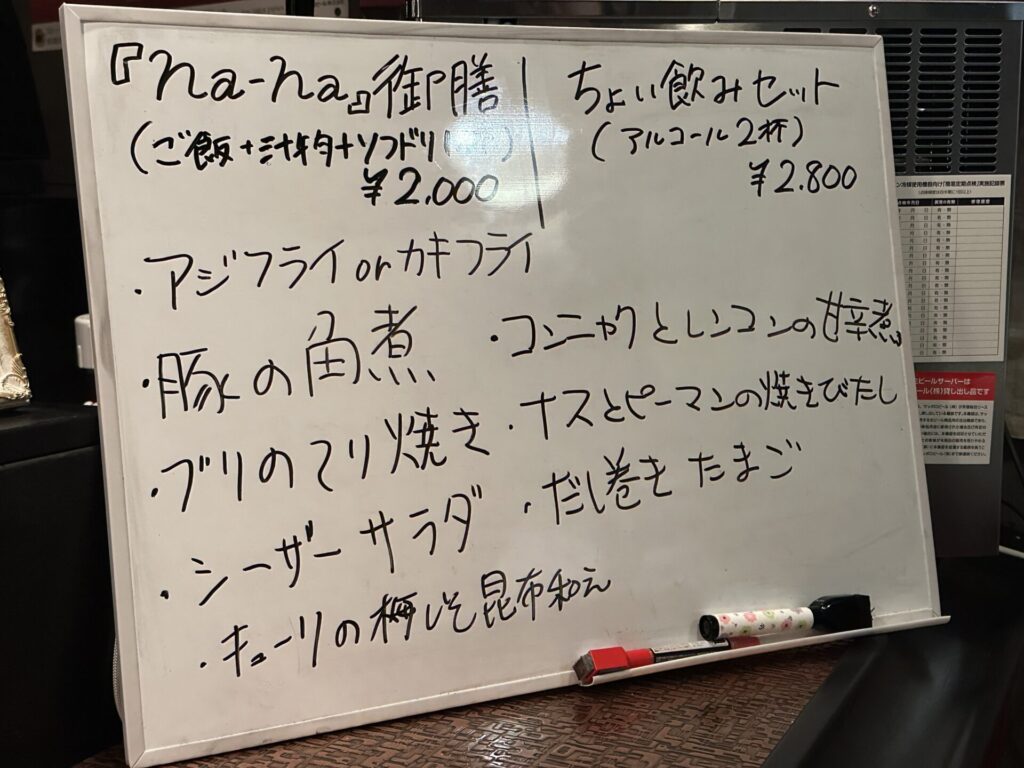 『na-na』御膳
(ご飯+汁物+ソフドリ)
¥2.000
ちょい飲みセット
(アルコール2杯)
¥2.800
・アジフライorカキフライ
・豚の角煮
・コンニャクとレンコンの甘辛煮
・ブリのてり焼き
・ナスとピーマンの焼きびたし
・シーザーサラダ
・だし巻きたまご
・キューリの梅しそ昆布和え